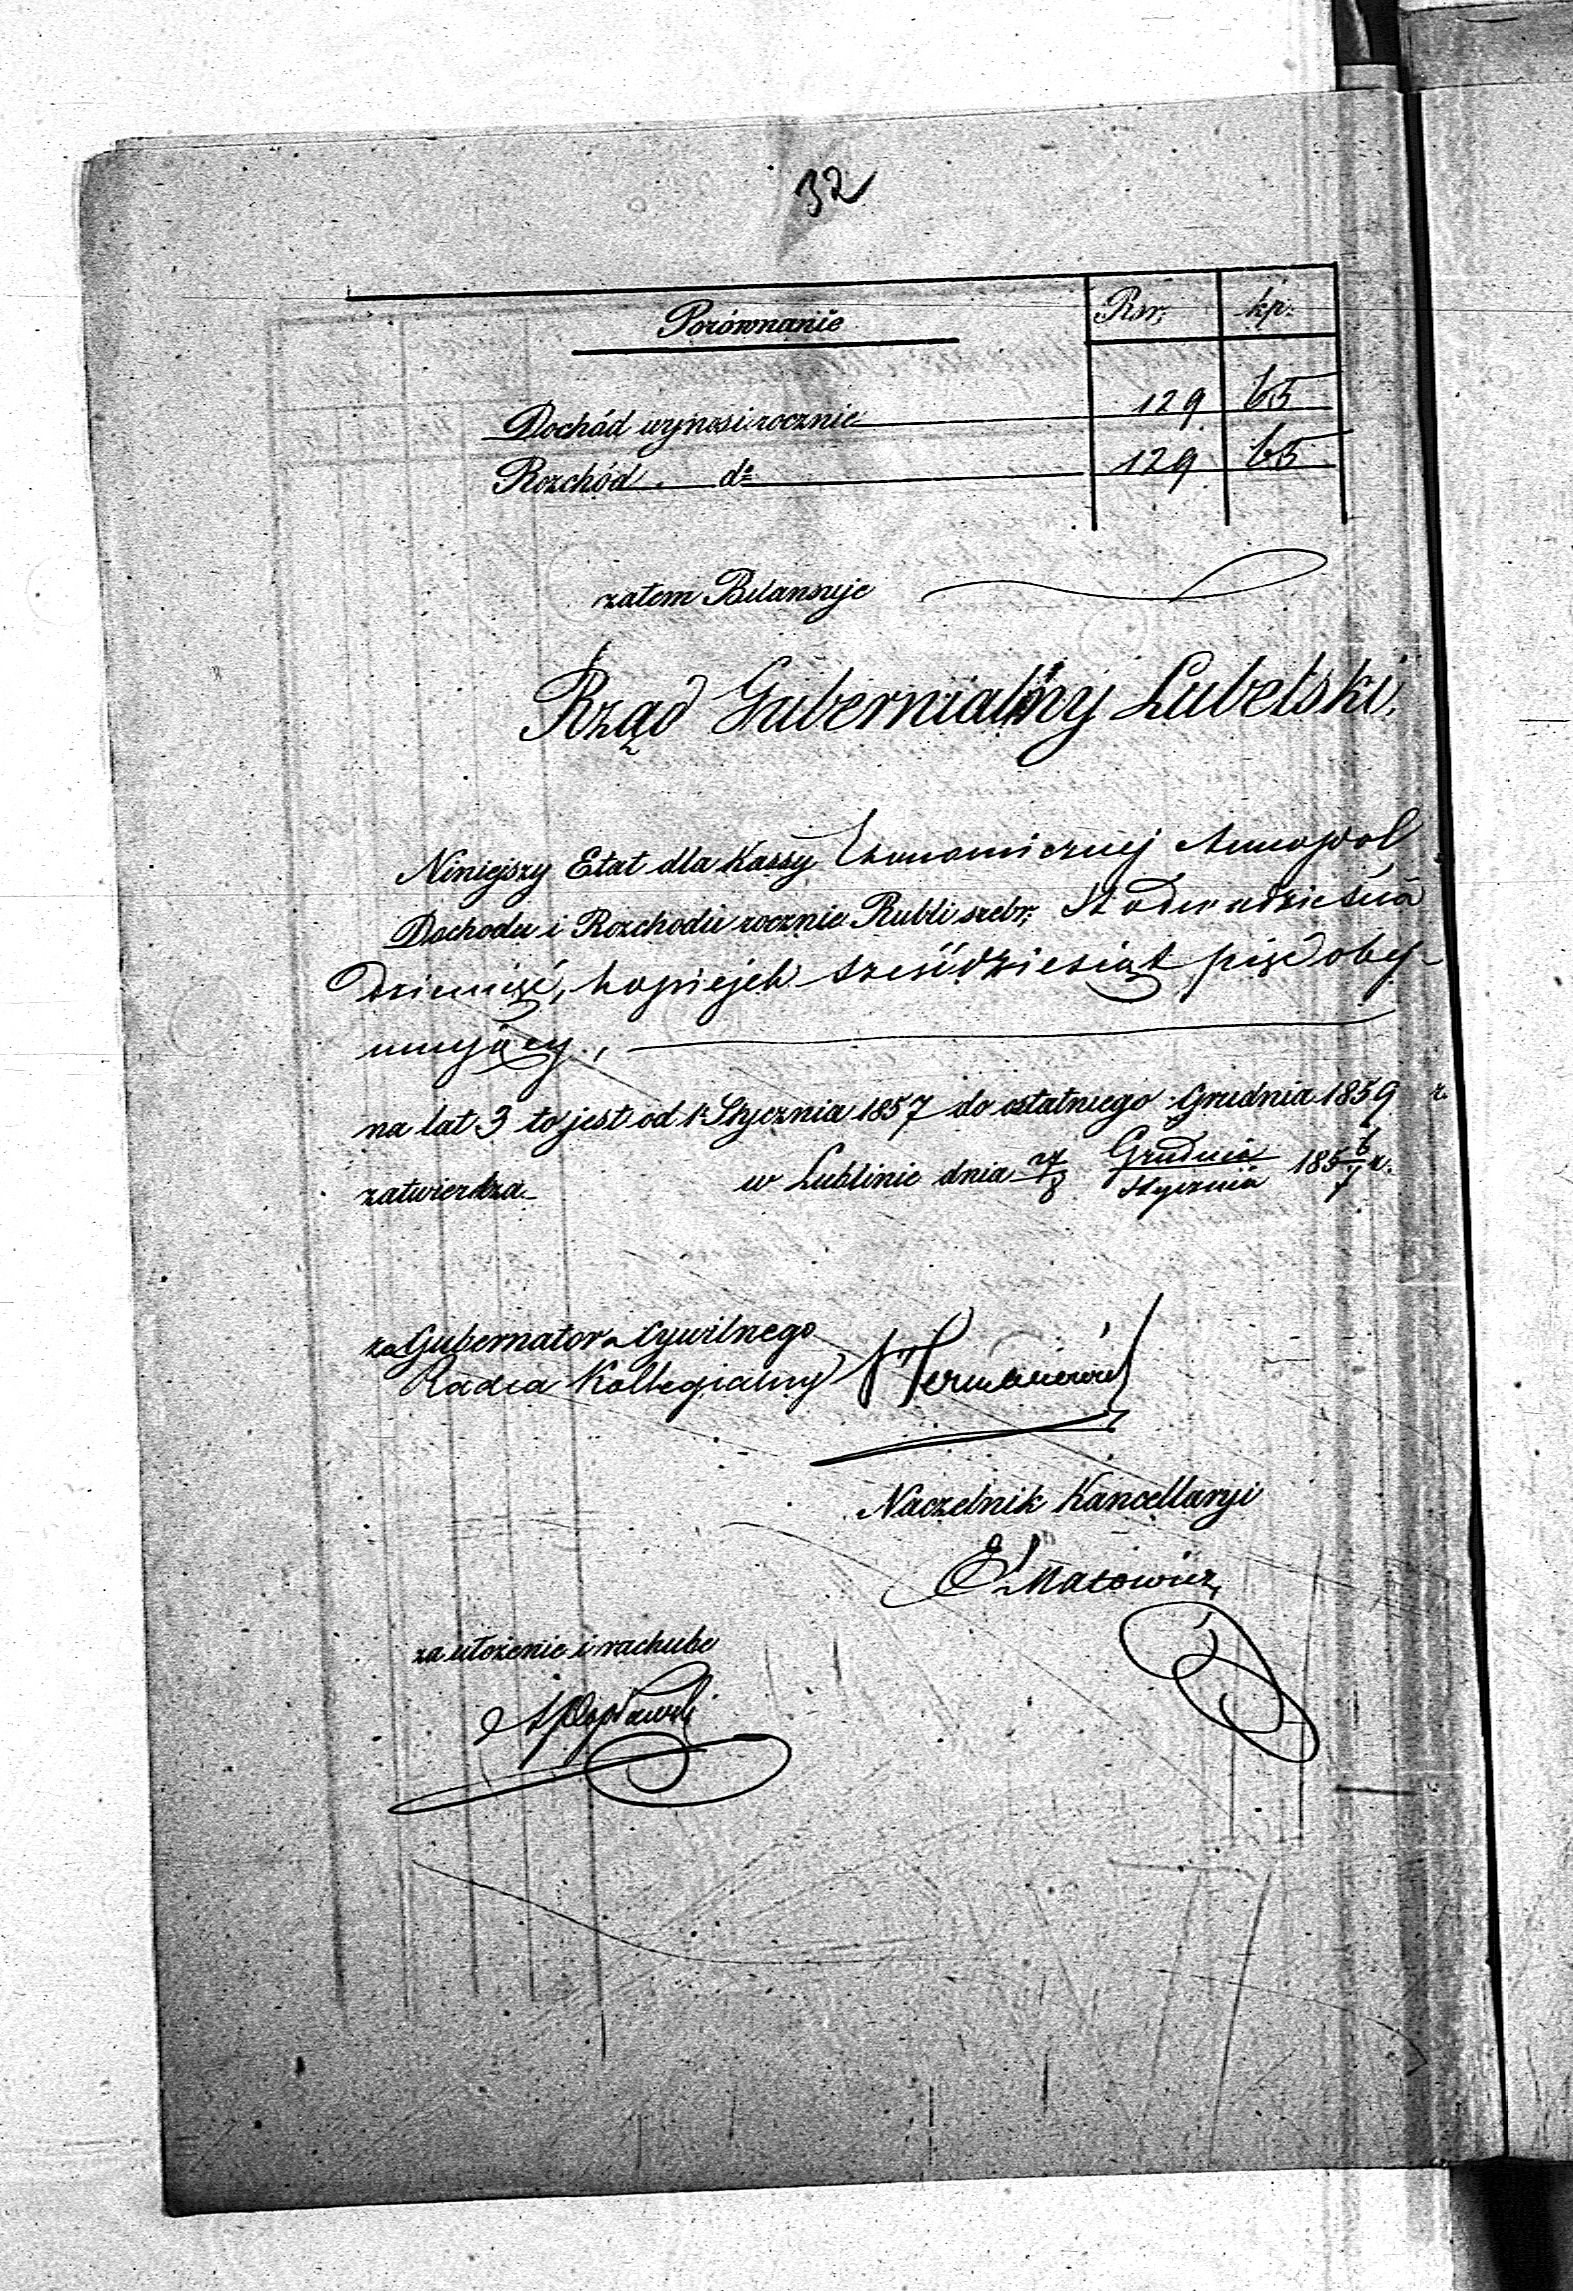 32
Porównanie Rsr. kp.
Dochód wynosi rocznie 129 65
Rozchód do 129 65
zatem Bilansuje
Rząd Gubernialny Lubelski,
Niniejszy Etat dla Kassy Ekonomicznej Annopol
Dochodu i Rozchodu rocznie Rubli srebr: Sto dwadzieścia
dziewięć, kopiejek sześćdziesiąt pięć obej-
mujący.,
na lat 3 to jest od 1 Stycznia 1857 do ostatniego Grudnia 1859 r.
zatwierdza w Lublinie dnia Grudnia/Stycznia 1856/7 r.
za Gubernatora Cywilnego
Radca Kollegialny
Naczelnik Kancellaryi
za ułożenie i rachubę